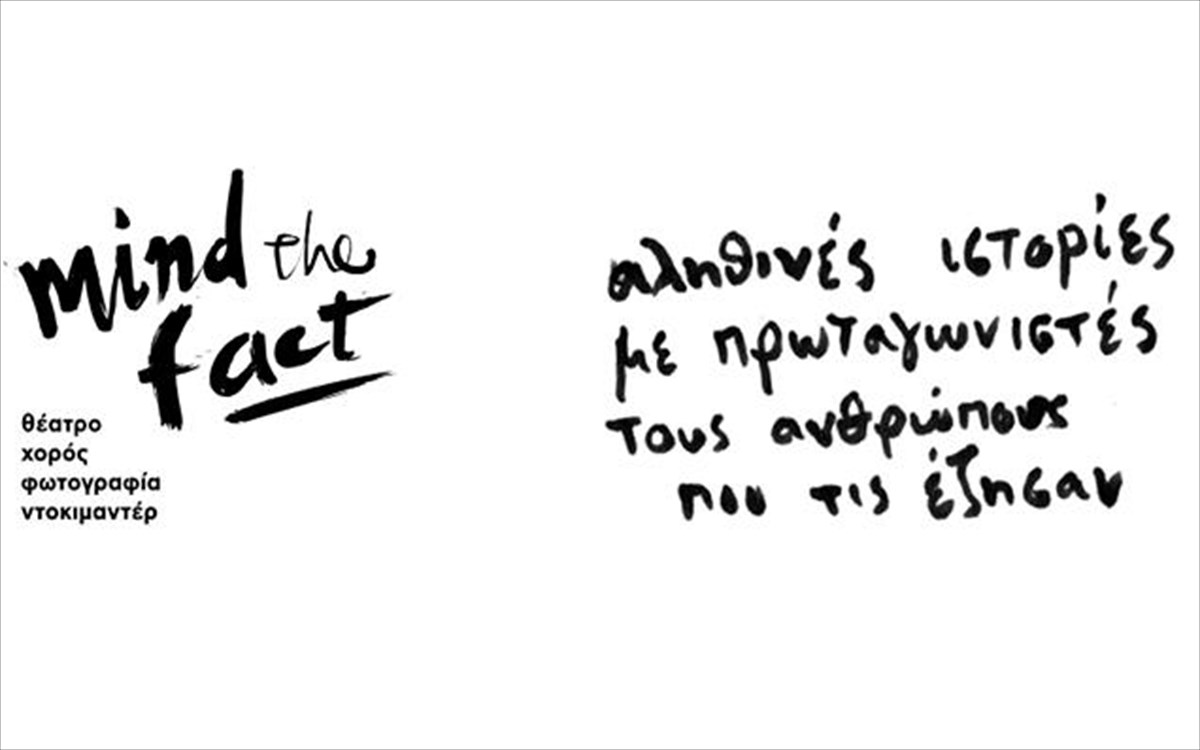 mind the
fact
θέατρο
χορός
φωτογραφία
ντοκιμαντέρ
αληθινές ιστορίες
με πρωταγωνιστές
τους ανθρώπους
που τις έζησαν